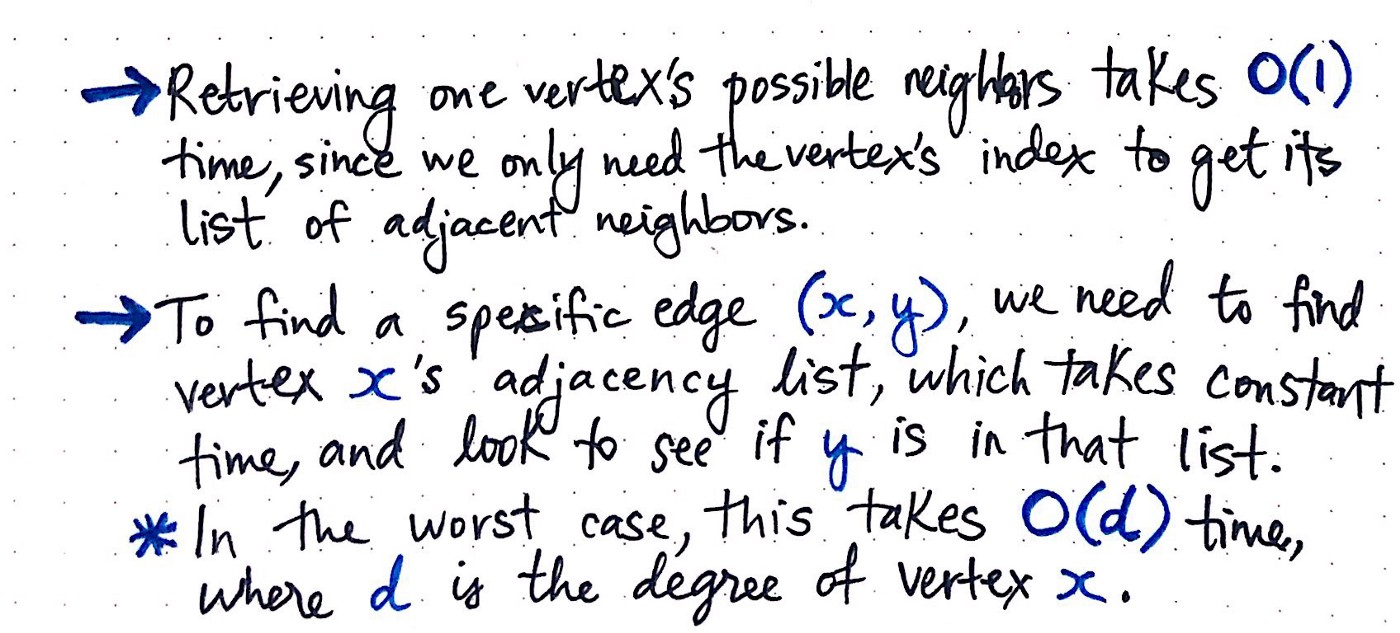 →Retrieving one vertex's possible neighbors takes O(1)
time, since we only need the vertex's index to get its
list of adjacent neighbors.
→To find a specific edge (x, y), we need to find
vertex x's adjacency list, which takes constant
time, and look to see if y is in that list.
*In the worst case, this takes O(d) time,
where d is the degree of vertex x.